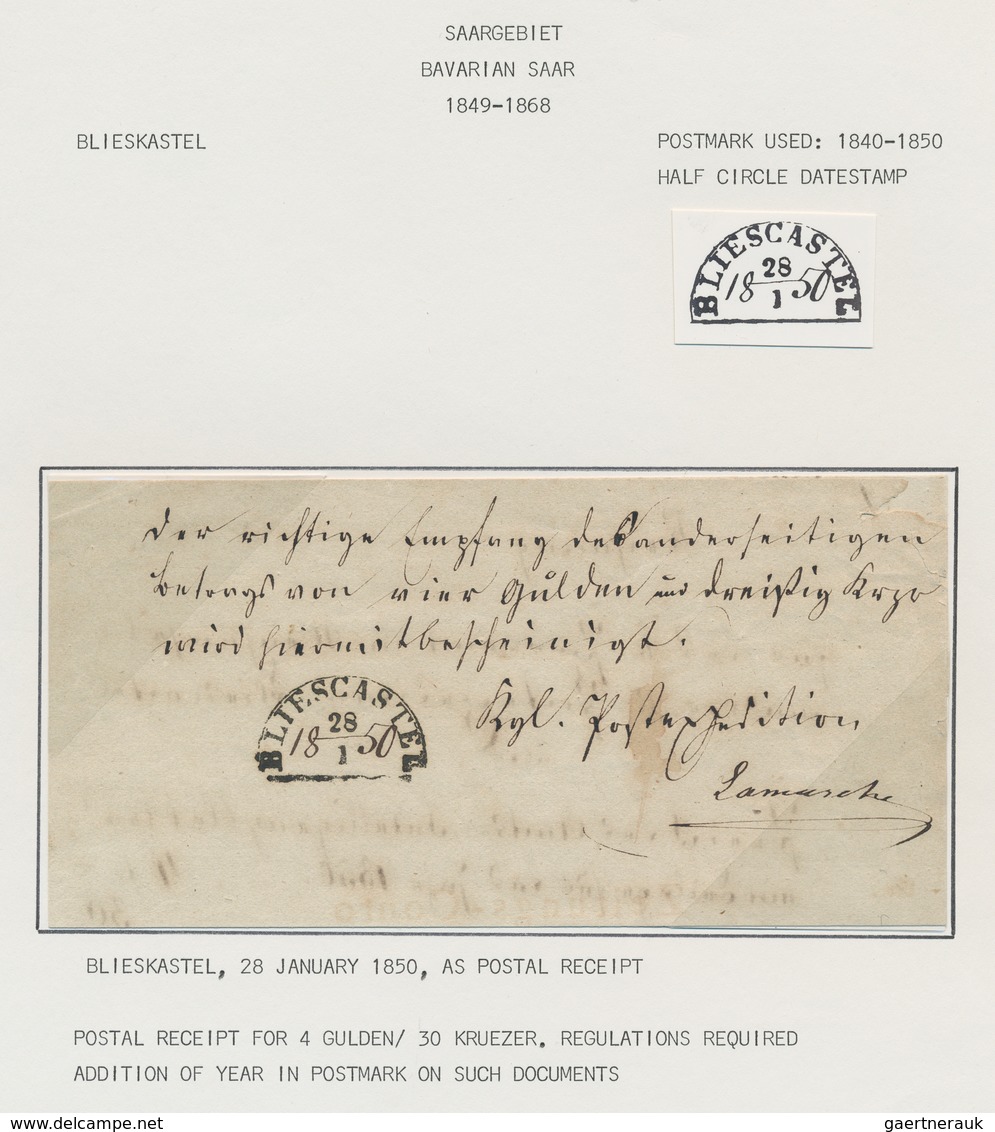 SAARGEBIET
BAVARIAN SAAR
1849-1868
BLIESKASTEL
POSTMARK USED: 1840-1850
HALF CIRCLE DATESTAMP
BLIESCASTEL
28
18 50
1
Der richtige Empfang des anderseitigen
Betrags von vier Gulden und dreißig Krzr
wird hiermit bescheinigt.
BLIESCASTEL
28
18 50
1
Kgl. Postexpedition
Lamarche
BLIESKASTEL, 28 JANUARY 1850, AS POSTAL RECEIPT
POSTAL RECEIPT FOR 4 GULDEN/ 30 KRUEZER. REGULATIONS REQUIRED
ADDITION OF YEAR IN POSTMARK ON SUCH DOCUMENTS
www.stampcircuit.com
gaertnerauk